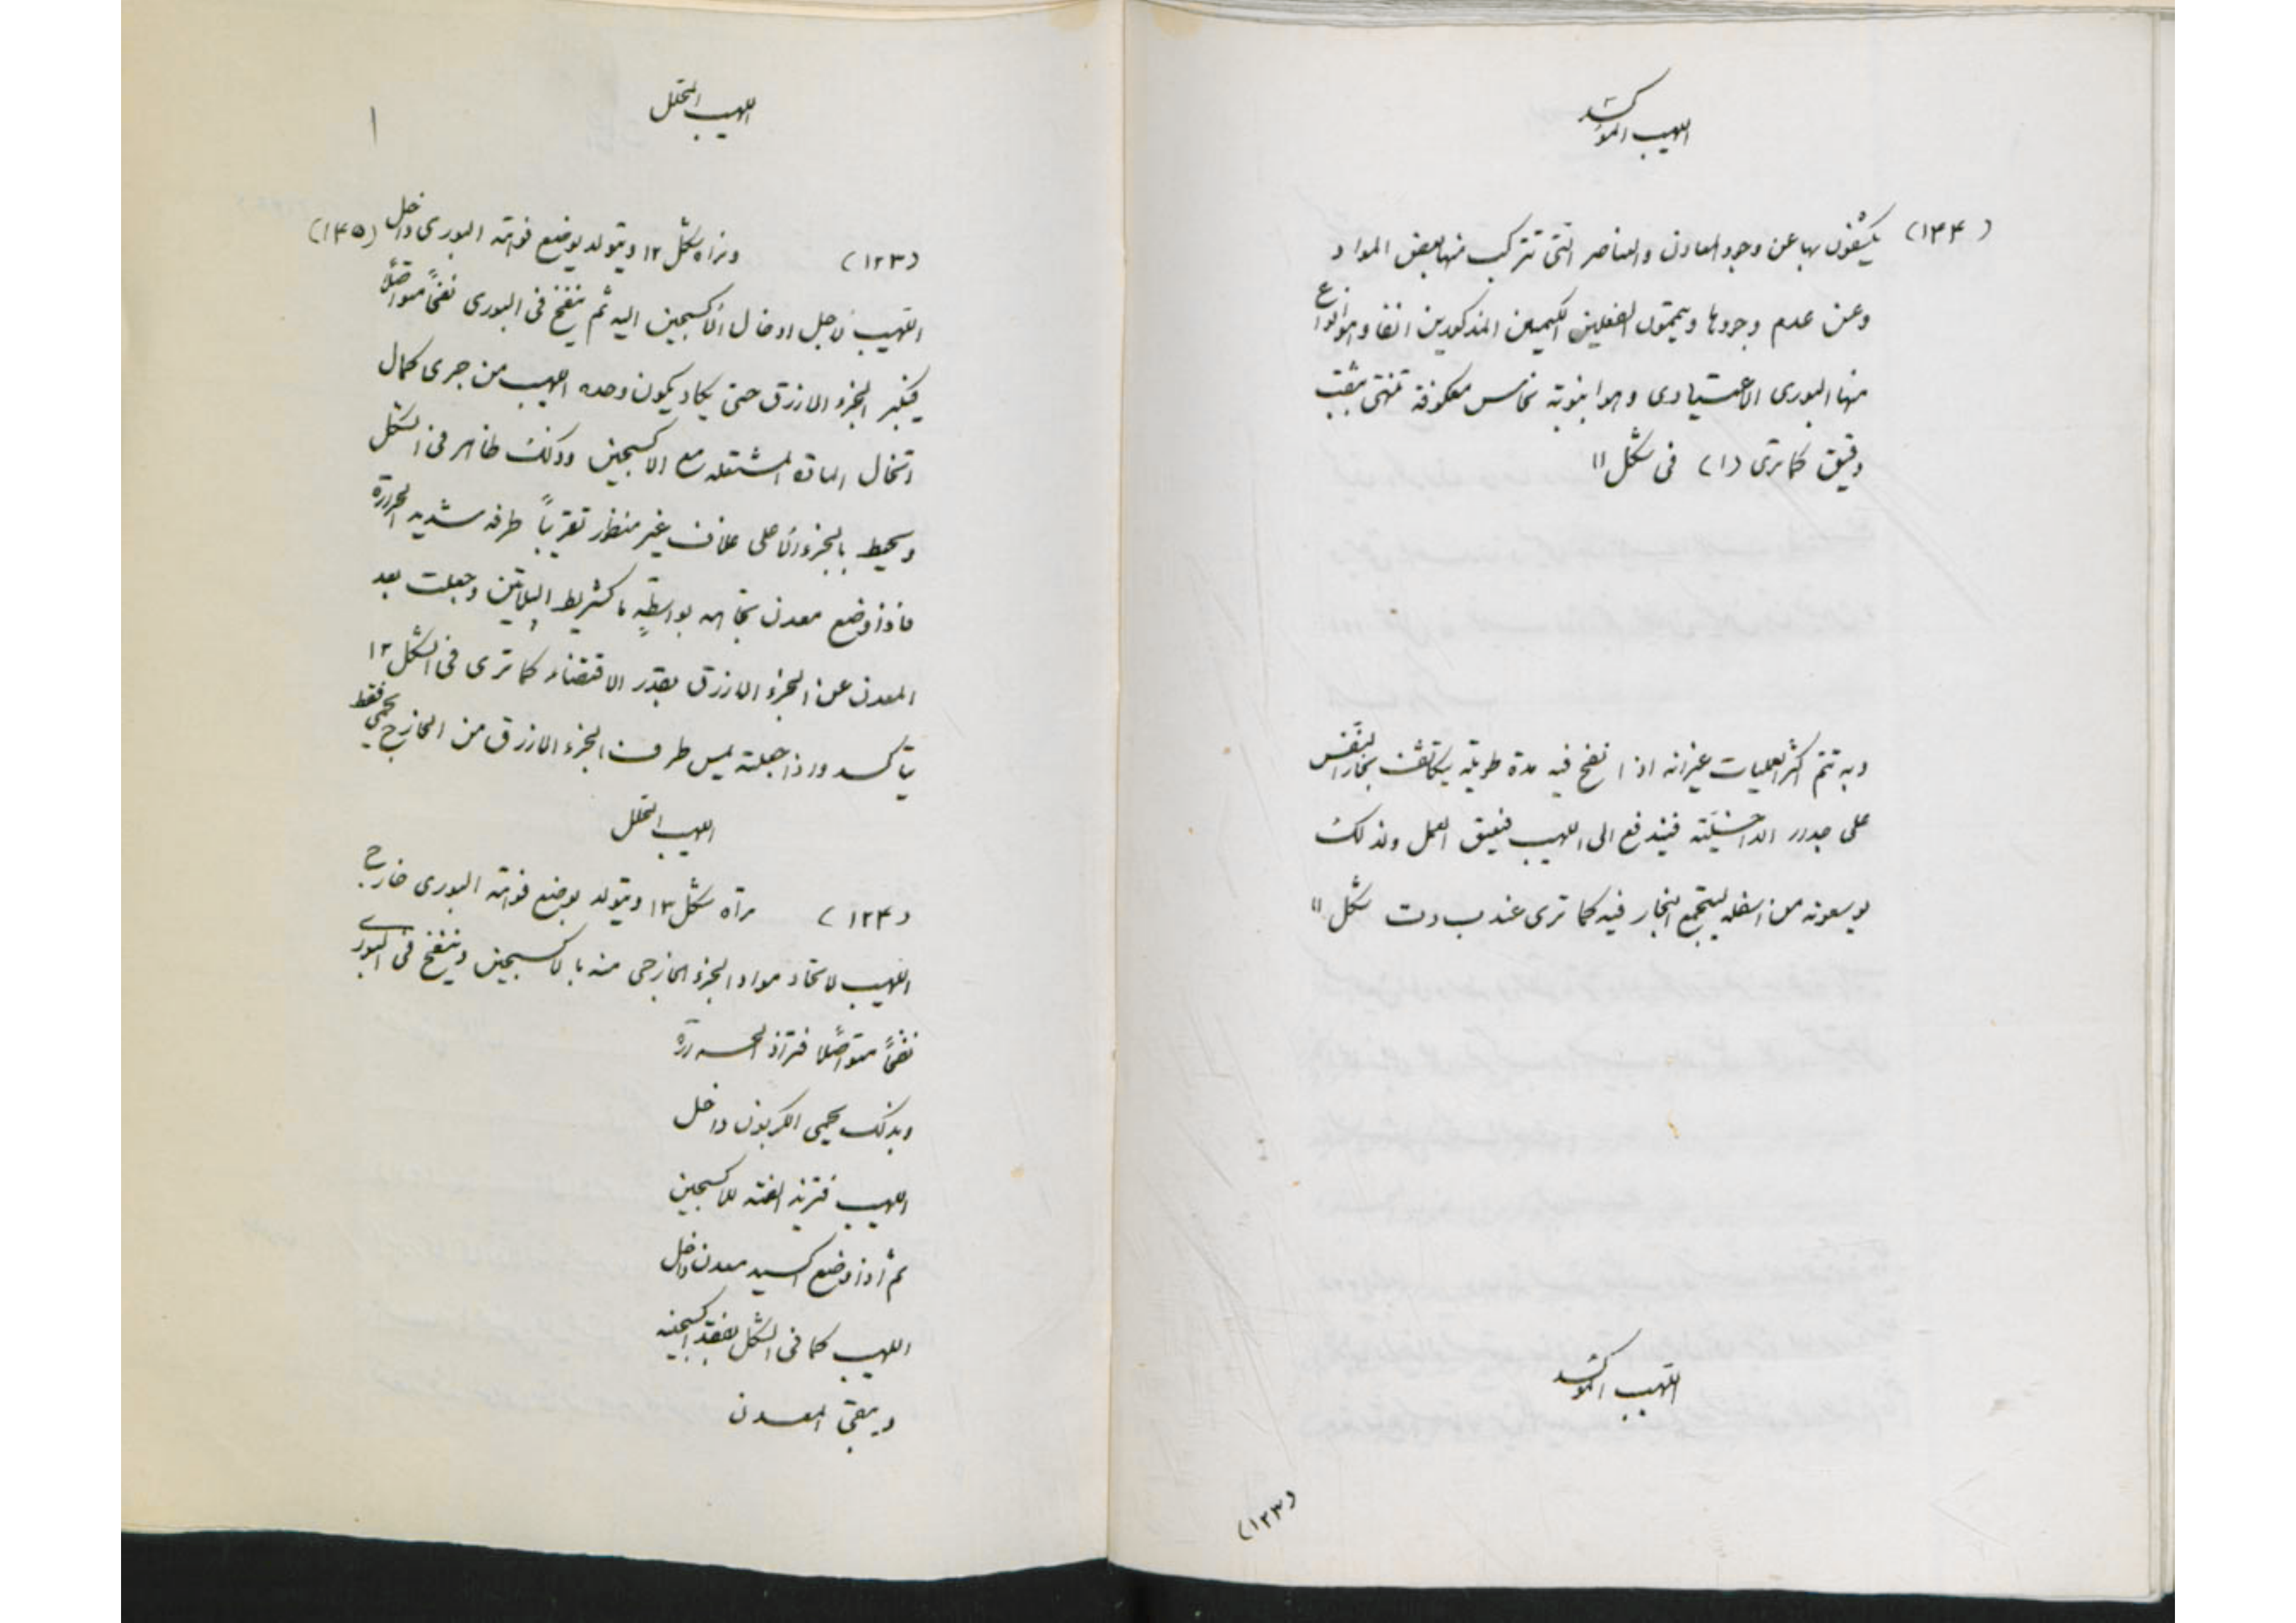 اللهيب المؤكسد
(١٤٤) يكشفون بها عن وجود المعادن والعناصر التى تتركب منها بعض المواد
وعن عدم وجودها ويتممون الفعلين الكيميين المذكورين انفا وهو انواع
منها البورى الاعتيادى وهو انبوبة نحاس معكوفة تنتهى بثقب
دقيق كما ترى (١) فى شكل ١١
وبه تتم اكثر العمليات غير انه اذا نفخ فيه مدة طويلة يتكاثف بخار النفس
على جدره الداخلية فيندفع الى اللهيب فيعيق العمل ولذلك
يوسعونه من اسفله ليتجمع البخار فيه كما ترى عند ب د ت شكل ١١
اللهيب المؤكسد
(١٢٣)
اللهيب المحلل
(١٢٣) ونراه شكل ١٢ ويتولد بوضع فوهة البورى داخل (١٤٥)
اللهيب لاجل ادخال الأكسجين اليه ثم ينفخ فى البورى نفخاً متواصلاً
فيكبر الجزء الازرق حتى يكاد يكون وحده اللهيب من جرى كمال
اتحاد المادة المشتعله مع الاكسجين وذلك ظاهر فى الشكل
ويحيط بالجزء الأعلى غلاف غير منظور تقريباً طرفه شديد الحرارة
فاذا وضع معدن تجاهه بواسطةٍ ما كشريط البلاتين وجعلت بعد
المعدن عن الجزء الازرق بقدر الاقتضاء كما ترى فى الشكل ١٢
يتأكسد واذا جعلته يمس طرف الجزء الازرق من الخارج يحمى فقط
اللهيب المحلل
(١٢٤) تراه شكل ١٣ ويتولد بوضع فوهة البورى خارج
اللهيب لاتحاد مواد الجزء الخارجى منه بالاكسجين وينفخ فى البورى
نفخاً متواصلاً فتزاد الحرارة
وبذلك يحمى الكربون داخل
اللهيب فتزيد الفته للاكسجين
ثم اذا وضع اكسيد معدن داخل
اللهيب كما فى الشكل يفقد اكسجينه
ويبقى المعدن